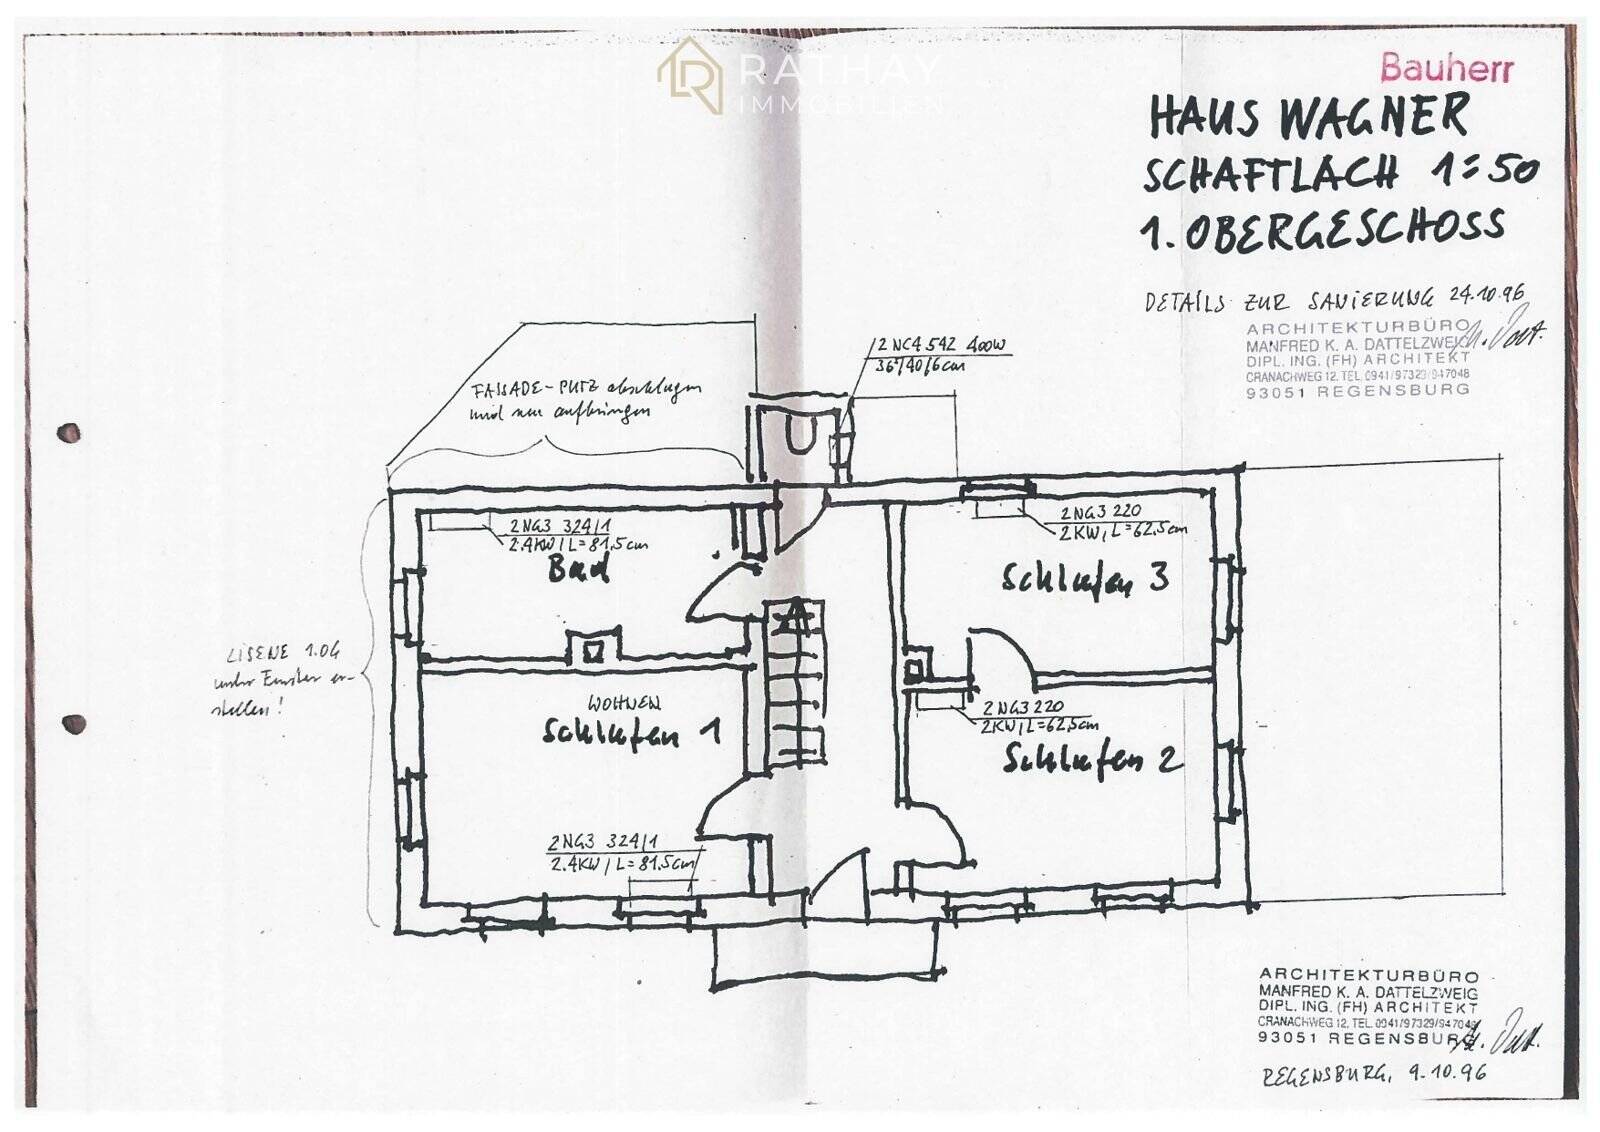 RATHAY
IMMOBILIEN
Bauherr
HAUS WAGNER
SCHAFTLACH 1:50
1. OBERGESCHOSS
DETAILS ZUR SANIERUNG 24.10.96
ARCHITEKTURBÜRO
MANFRED K. A. DATTELZWEIG
DIPL. ING. (FH) ARCHITEKT
CRANACHWEG 12, TEL. 0941/97329/947048
93051 REGENSBURG
2NC4 542 400W
36/40/6cm
FASSADE-PUTZ abschlagen
und neu aufbringen
2NG3 324/1
2.4KW/L=81,5cm
Bad
2NG3 220
2KW/L=62,5cm
Schlafen 3
LISENE 1.OG
unter Fenster er-
stellen!
WOHNEN
Schlafen 1
2NG3 220
2KW/L=62,5cm
Schlafen 2
2NG3 324/1
2.4KW/L=81.5cm
ARCHITEKTURBÜRO
MANFRED K. A. DATTELZWEIG
DIPL. ING. (FH) ARCHITEKT
CRANACHWEG 12, TEL. 0941/97329/947048
93051 REGENSBURG
REGENSBURG, 9.10.96